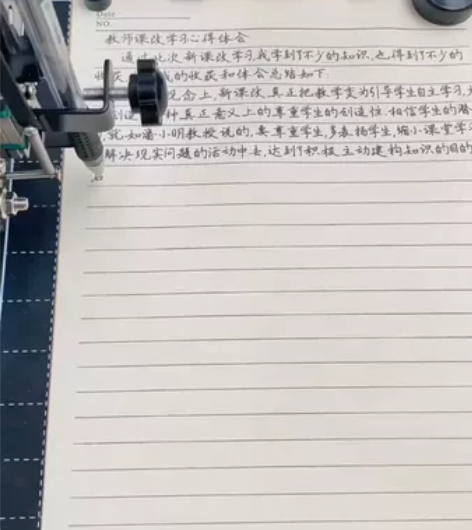 Date
NO.
教师课改学习心得体会
通过此次新课改学习,我学到了不少的知识,也得到了不少的
收获 我的收获和体会总结如下:
念上,新课改真正把教学变为引导学生自主学习,
种真正意义上的尊重学生的创造性.相信学生的潜
就如潘小明教授说的,要尊重学生,多表扬学生,缩小课堂学
解决现实问题的活动中去,达到了积极主动建构知识的目的